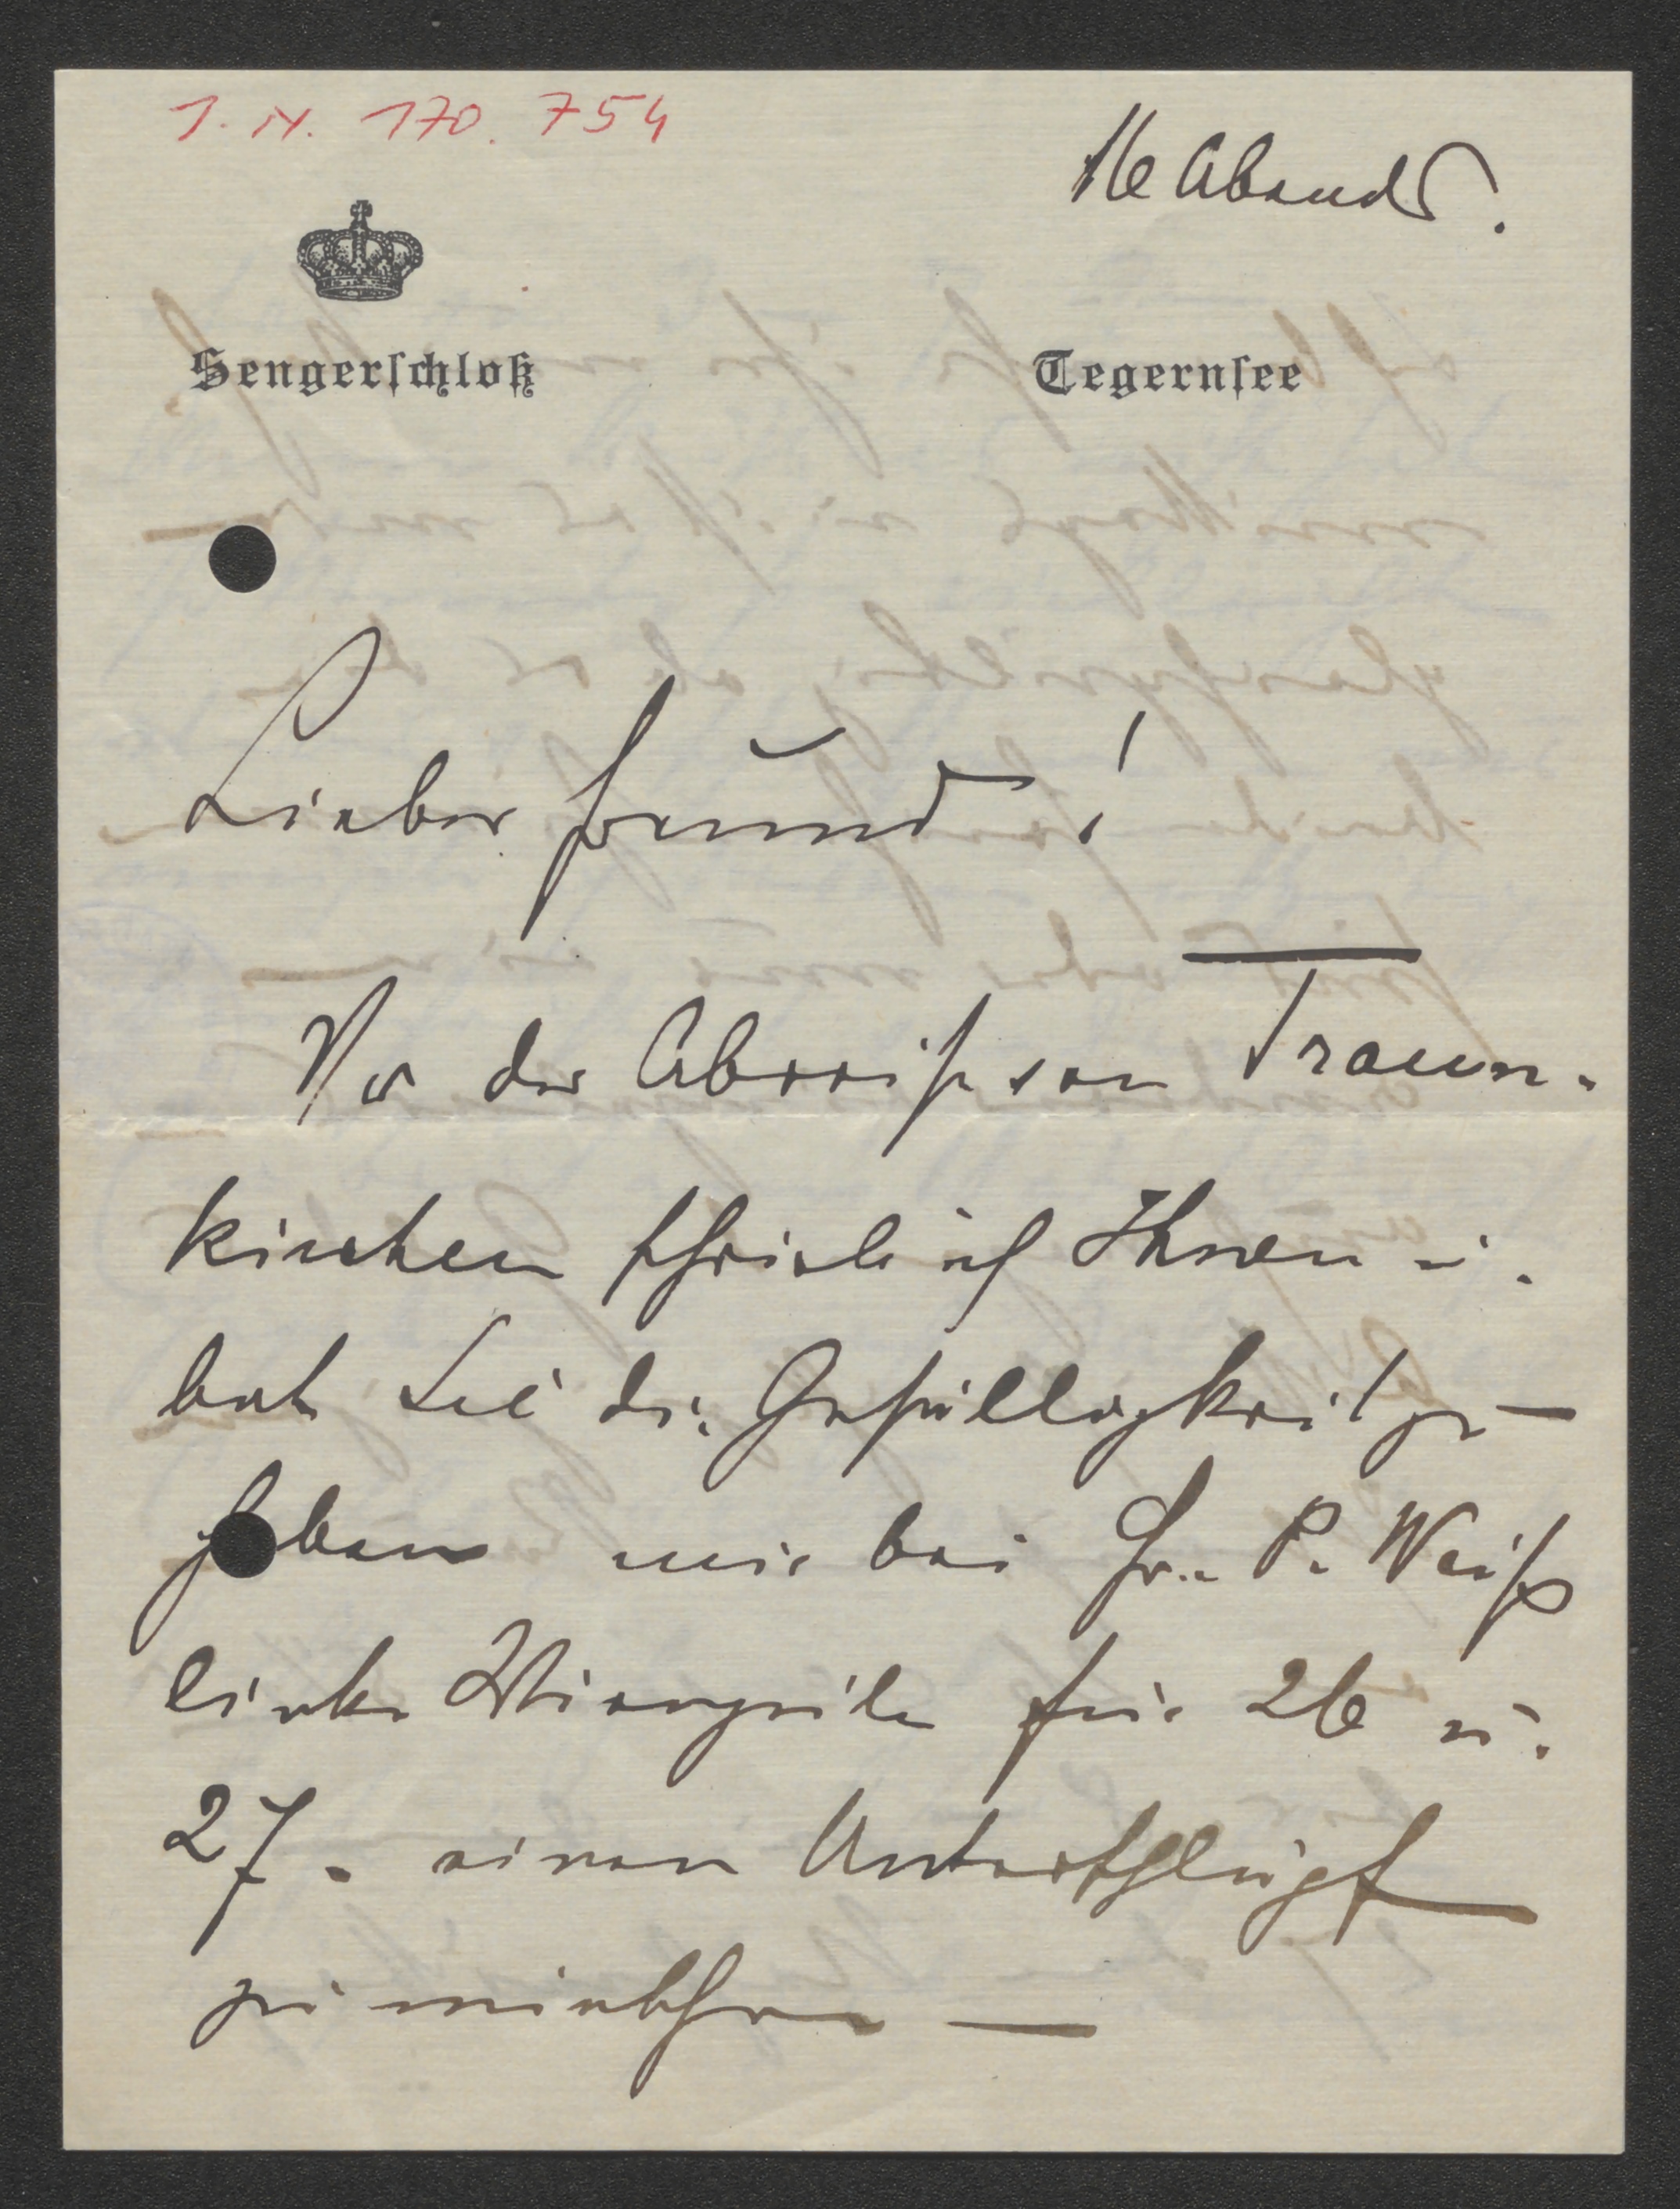 I. N. 170.754
16 Abends.
Sengerschloß Tegernsee
Lieber Freund!
Vor der Abreise von Traun-
kirchen schrieb ich Ihnen u.
bat Sie die Gefälligkeit zu
haben mir bei Hr. P. Weiß
linke Wienzeile für 26 u.
27. einen Unterschlupf
zu miethen —